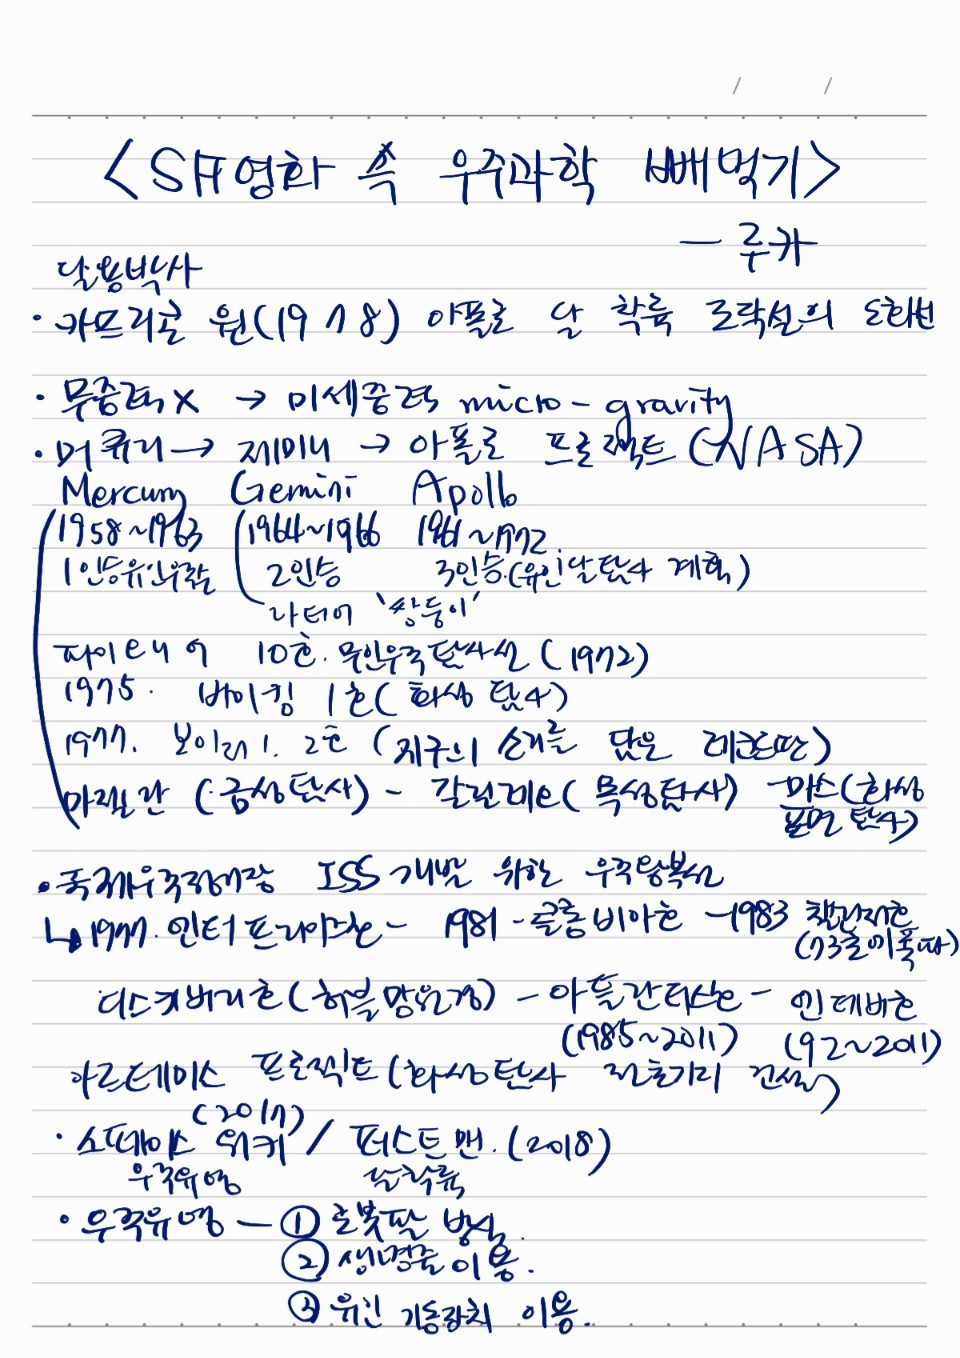 / /
<SF영화 속 우주과학 빼먹기>
— 루카
달용박사
· 카프리콘 원(1978) 아폴로 달 착륙 조작설의
· 무중력X → 미세중력 micro-gravity
· 머큐리 → 제미니 → 아폴로 프로젝트 (NASA)
Mercury Gemini Apollo
1958~1963 1964~1966 1961~1972
1인승유인우주 2인승 3인승.(유인달탐사 계획)
라틴어 '쌍둥이'
파이어니어 10호. 무인우주탐사선 (1972)
1975. 바이킹 1호( 화성 탐사)
1977. 보이저 1. 2호 (지구의 소리를 담은 레코드판)
마젤란 (금성탐사) - 갈릴레오( 목성탐사) -마스(화성
표면 탐사)
· 국제우주정거장 ISS 개발 위한 우주왕복선
↳ 1977. 인터프라이즈호 - 1981 - 콜롬비아호 -1983 챌린저호
(73초 폭파)
디스커버리호 (허블망원경) - 아틀란티스호 - 인데버호
(1985~2011) (92~2011)
아르테미스 프로젝트 (화성탐사 전초기지 건설)
(2017)
· 스페이스 워커 / 퍼스트맨. (2018)
우주유영 달착륙
· 우주유영 — ① 로봇팔 방식.
② 생명줄 이용.
③ 유인 기동장치 이용.